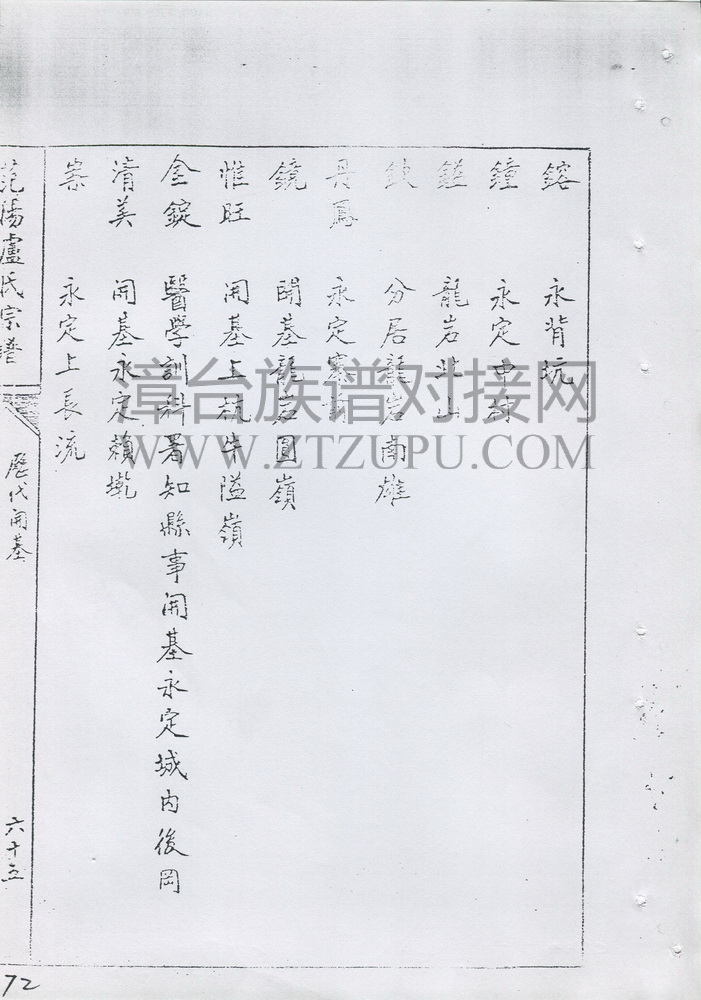 鎔 永背坑
鐘 永定
龍岩
分居龍岩南雄
永定寨前
鏡 開基龍岩圓嶺
惟旺 開基上杭牛隘嶺
金錠 醫學訓科署知縣事開基永定城内後岡
清美 開基永定賴坑
崇 永定上長流
范陽盧氏宗譜
歷代開基
六十五
72
漳台族谱对接网
WWW.ZTZUPU.COM